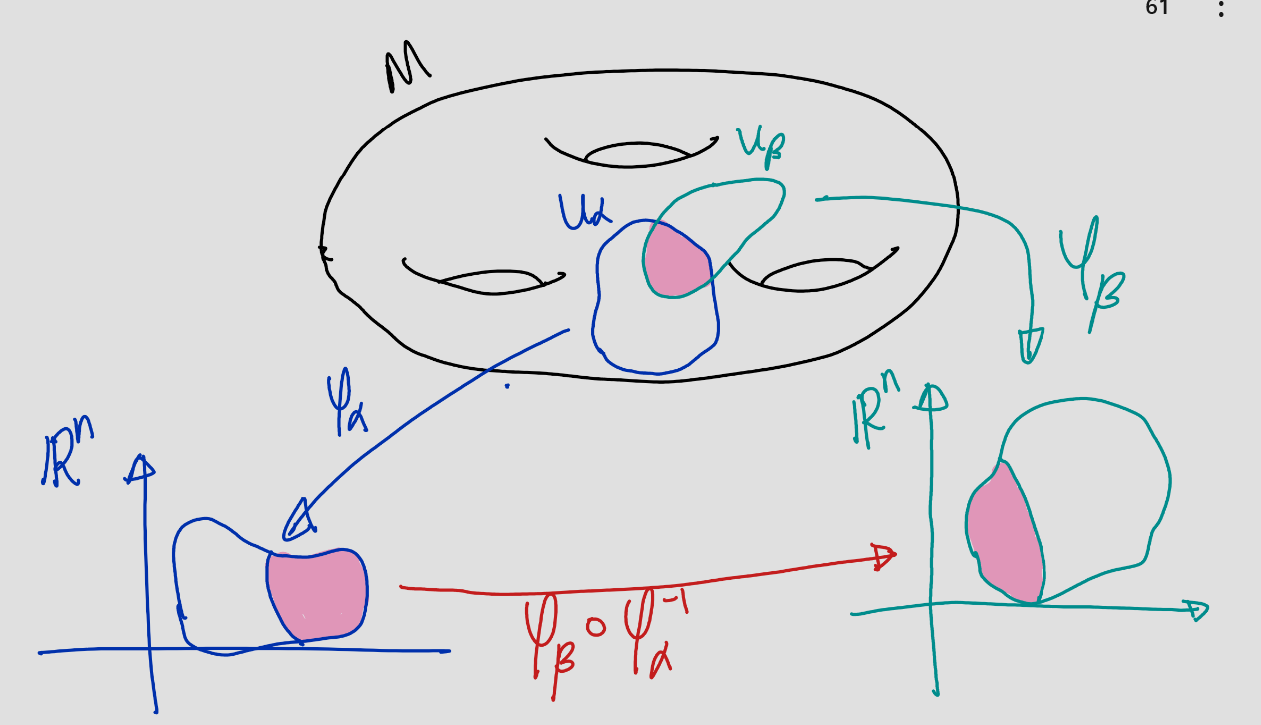 61
M
U_β
U_α
φ_β
φ_α
ℝⁿ
ℝⁿ
φ_β ∘ φ_α⁻¹